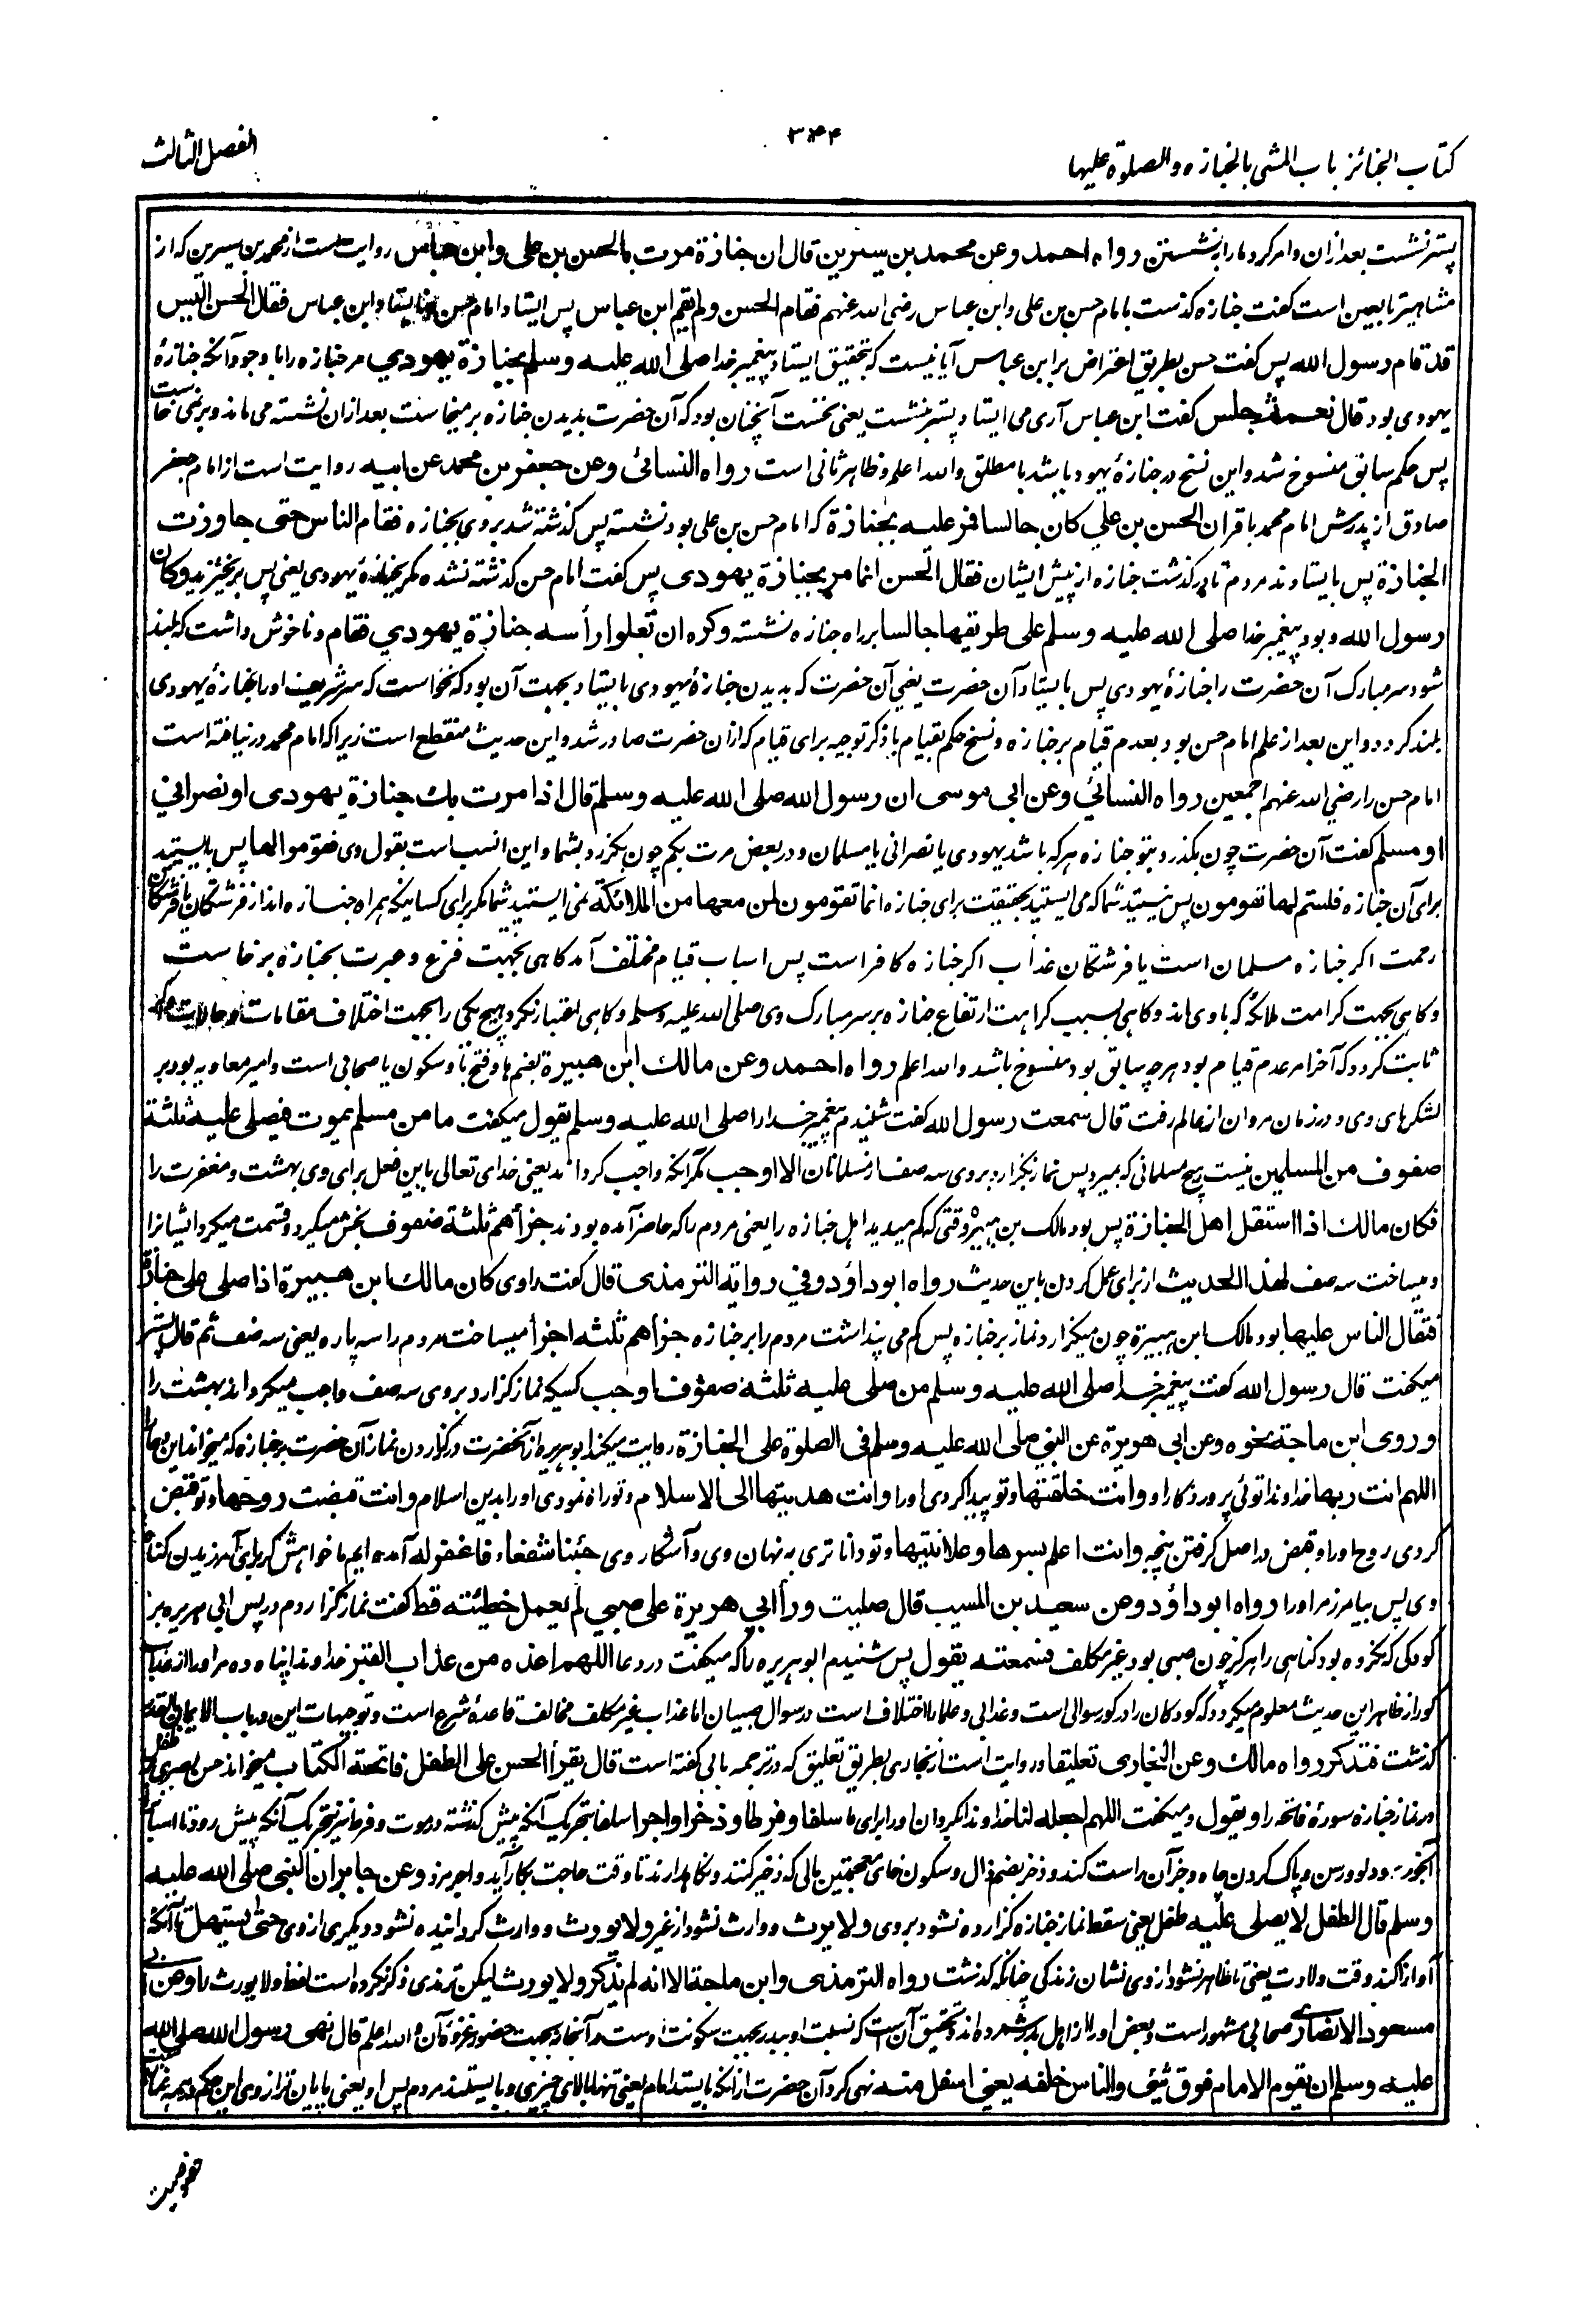 كتاب الجنائز باب المشى بالجنازه والصلوة عليها
۳۴۴
الفصل الثالث
پستر نشست بعد ازان و امر کرد مارا به نشستن رواه احمد وعن محمد بن سيرين قال ان جنازة مرت بالحسن بن على وابن عباس روايت ست از محمد بن سيرين که از
مشاهير تابعين است کفت جنازه کذشت با امام حسن بن على وابن عباس رضى الله عنهم فقام الحسن ولم يقم ابن عباس پس ايستاد امام حسن و نايستاد ابن عباس فقال الحسن اليس
قد قام رسول الله پس کفت حسن بطريق اعتراض بر ابن عباس آيا نيست که بتحقيق ايستاد پيغمبر خدا صلى الله عليه وسلم بجنازة يهودي مر جنازه را با وجود آنکه جنازهٔ
يهودى بود قال نعم ثم جلس کفت ابن عباس آرى مى ايستاد پستر بنشست يعنى نخست آنچنان بود که آن حضرت بديدن جنازه بر ميخاست بعد ازان نشسته مى ماند و بر نمى خاست
پس حکم سابق منسوخ شد و اين نسخ در جنازهٔ يهود باشد يا مطلق والله اعلم و ظاهر ثانى است رواه النسائى وعن جعفر بن محمد عن ابيه روايت است از امام جعفر
صادق از پدرش امام محمد باقر ان الحسن بن علي كان جالسا فمر عليه بجنازة که امام حسن بن على بود نشسته پس کذشته شد بروى بجنازه فقام الناس حتى جاوزت
الجنازة پس بايستادند مردم تا در کذشت جنازه از پيش ايشان فقال الحسن انما مر بجنازة يهودى پس کفت امام حسن کذشته نشده مکر بجنازهٔ يهودى يعنى پس بر نخيزيد وكان
رسول الله و بود پيغمبر خدا صلى الله عليه وسلم على طريقها جالسا بر راه جنازه نشسته وكره ان تعلو رأسه جنازة يهودي فقام و ناخوش داشت که بلند
شود سر مبارک آن حضرت را جنازهٔ يهودى پس بايستاد آن حضرت يعنى آن حضرت که بديدن جنازهٔ يهودى بايستاد بجهت آن بود که نخواست که سر شريف او را جنازهٔ يهودى
بلند کردد و اين بعد از علم امام حسن بود بعدم قيام بر جنازه و نسخ حکم بقيام يا ذکر توجيه براى قيام که ازان حضرت صادر شد و اين حديث منقطع است زيرا که امام محمد در نيافته است
امام حسن را رضي الله عنهم اجمعين رواه النسائي وعن ابى موسى ان رسول الله صلى الله عليه وسلم قال اذا مرت بك جنازة يهودى او نصراني
او مسلم کفت آن حضرت چون بکذرد بتو جنازه هر که باشد يهودى يا نصرانى يا مسلمان و در بعض مرت بکم چون بکذرد بشما و اين انسب است بقول وى فقوموا لها پس بايستيد
براى آن جنازه فلستم لها تقومون پس نيستيد شما که مى ايستيد بحقيقت براى جنازه انما تقومون لمن معها من الملائكة نمى ايستيد شما مکر براى کسانيکه همراه جنازه اند از فرشتکان يا فرشتکان
رحمت اکر جنازه مسلمان است يا فرشتکان عذاب اکر جنازه کافر است پس اسباب قيام مختلف آمد کاهى بجهت فزع و عبرت بجنازه برخاست
و کاهى بجهت کرامت ملائکه که با وى اند و کاهى بسبب کراهت ارتفاع جنازه بر سر مبارک وى صلى الله عليه وسلم و کاهى اعتبار نکرد هيچ يکى را بجهت اختلاف مقامات و حالات
ثابت کردد که آخر امر عدم قيام بود هر چه سابق بود منسوخ باشد والله اعلم رواه احمد وعن مالك ابن هبيرة بضم ها و فتح با و سکون يا صحابى است و امير معاويه بود بر
لشکرهاى وى و در زمان مروان از عالم رفت قال سمعت رسول الله کفت شنيدم پيغمبر خدا را صلى الله عليه وسلم يقول ميکفت ما من مسلم يموت فيصلى عليه ثلثة
صفوف من المسلمين نيست هيچ مسلمانى که بميرد پس نماز بکزارد بروى سه صف از مسلمانان الا اوجب مکر آنکه واجب کرداند يعنى خداى تعالى باين فعل براى وى بهشت و مغفرت را
فكان مالك اذا استقل اهل الجنازة پس بود مالک بن هبيره وقتى که کم ميديد اهل جنازه را يعنى مردم را که حاضر آمده بودند جزأهم ثلثة صفوف بخش ميکرد و قسمت ميکرد ايشانرا
و ميساخت سه صف لهذا الحديث از براى عمل کردن باين حديث رواه ابو داؤد وفي رواية الترمذى قال کفت راوى كان مالك ابن هبيرة اذا صلى على جنازة
فتقال الناس عليها بود مالک ابن هبيرة چون ميکزارد نماز بر جنازه پس کم مى پنداشت مردم را بر جنازه جزأهم ثلثه اجزأ ميساخت مردم را سه پاره يعنى سه صف ثم قال پستر
ميکفت قال رسول الله کفت پيغمبر خدا صلى الله عليه وسلم من صلى عليه ثلثة صفوف اوجب کسيکه نماز کزارد بروى سه صف واجب ميکرداند بهشت را
وروى ابن ماجة نحوه وعن ابى هريرة عن النبي صلى الله عليه وسلم فى الصلوة على الجنازة روايت ميکند ابو هريره از آنحضرت در کزاردن نماز آن حضرت بر جنازه که ميخواند اين دعا
اللهم انت ربها خداوندا توئى پروردکار او وانت خلقتها و تو پيدا کردى او را وانت هديتها الى الاسلام و تو راه نمودى او را بدين اسلام وانت قبضت روحها و تو قبض
کردى روح او را و قبض در اصل کرفتن بپنجه وانت اعلم بسرها وعلانيتها و تو داناترى به نهان وى و آشکار وى جئنا شفعاء فاغفر له آمده ايم ما خواهش کر براى آمرزيدن کناه
وى پس بيامرز مر او را رواه ابو داؤد وعن سعيد بن المسيب قال صليت ورأ ابي هريرة على صبي لم يعمل خطيئة قط کفت نماز کزاردم در پس ابى هريره بر
کودکى که نکرده بود کناهى را هرکز چون صبى بود غير مکلف فسمعته يقول پس شنيدم ابو هريره را که ميکفت در دعا اللهم اعذه من عذاب القبر خداوندا پناه ده مر او را از عذاب
کور از ظاهر اين حديث معلوم ميکردد که کودکان را در کور سوالى است و عذابى و علما را اختلاف است در سوال صبيان اما عذاب غير مکلف مخالف قاعدهٔ شرع است و توجيهات اين در باب الايمان بالقدر
کذشت فتذکر رواه مالك وعن البخارى تعليقا و روايت است از بخارى بطريق تعليق که در ترجمه بابى کفته است قال يقرأ الحسن على الطفل فاتحة الكتاب ميخواند حسن بصرى بر طفل
در نماز جنازه سورهٔ فاتحه را ويقول و ميکفت اللهم اجعله لنا خداوندا بکردان او را براى ما سلفا وفرطا وذخرا واجرا سلفا بتحريک آنکه پيش کذشته در موت و فرط نيز بتحريک آنکه پيش رود تا اسباب
آبخور و دلو و رسن و پاک کردن چاه و جز آن راست کند و ذخر بضم ذال و سکون خاى معجمتين مالى که ذخيره کنند و نکاهدارند تا وقت حاجت بکار آيد و اجر مزد وعن جابر ان النبى صلى الله عليه
وسلم قال الطفل لا يصلى عليه طفل يعنى سقط نماز جنازه کزارده نشود بروى ولا يرث و وارث نشود از غير ولا يورث و وارث کردانيده نشود ديکرى از وى حتى يستهل تا آنکه
آواز کند وقت ولادت يعنى تا ظاهر نشود از وى نشان زندکى چنانکه کذشت رواه الترمذى وابن ماجة الا انه لم يذكر ولا يورث ليکن ترمذى ذکر نکرده است لفظ ولا يورث را وعن ابى
مسعود الانصارى صحابى مشهور است و بعض او را از اهل بدر شمرده اند و تحقيق آن است که نسبت او ببدر بجهت سکونت اوست در آنجا نه بجهت حضور غزوهٔ آن والله اعلم قال نهى رسول الله صلى الله
عليه وسلم ان يقوم الامام فوق شئ والناس خلفه يعنى اسفل منه نهى کرد آن حضرت از آنکه بايستد امام يعنى تنها بالاى چيزى و بايستند مردم پس او يعنى پايان تر از وى اين حکم